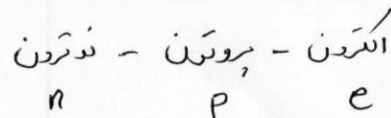 الکترون - پروتون - نوترون
e p n